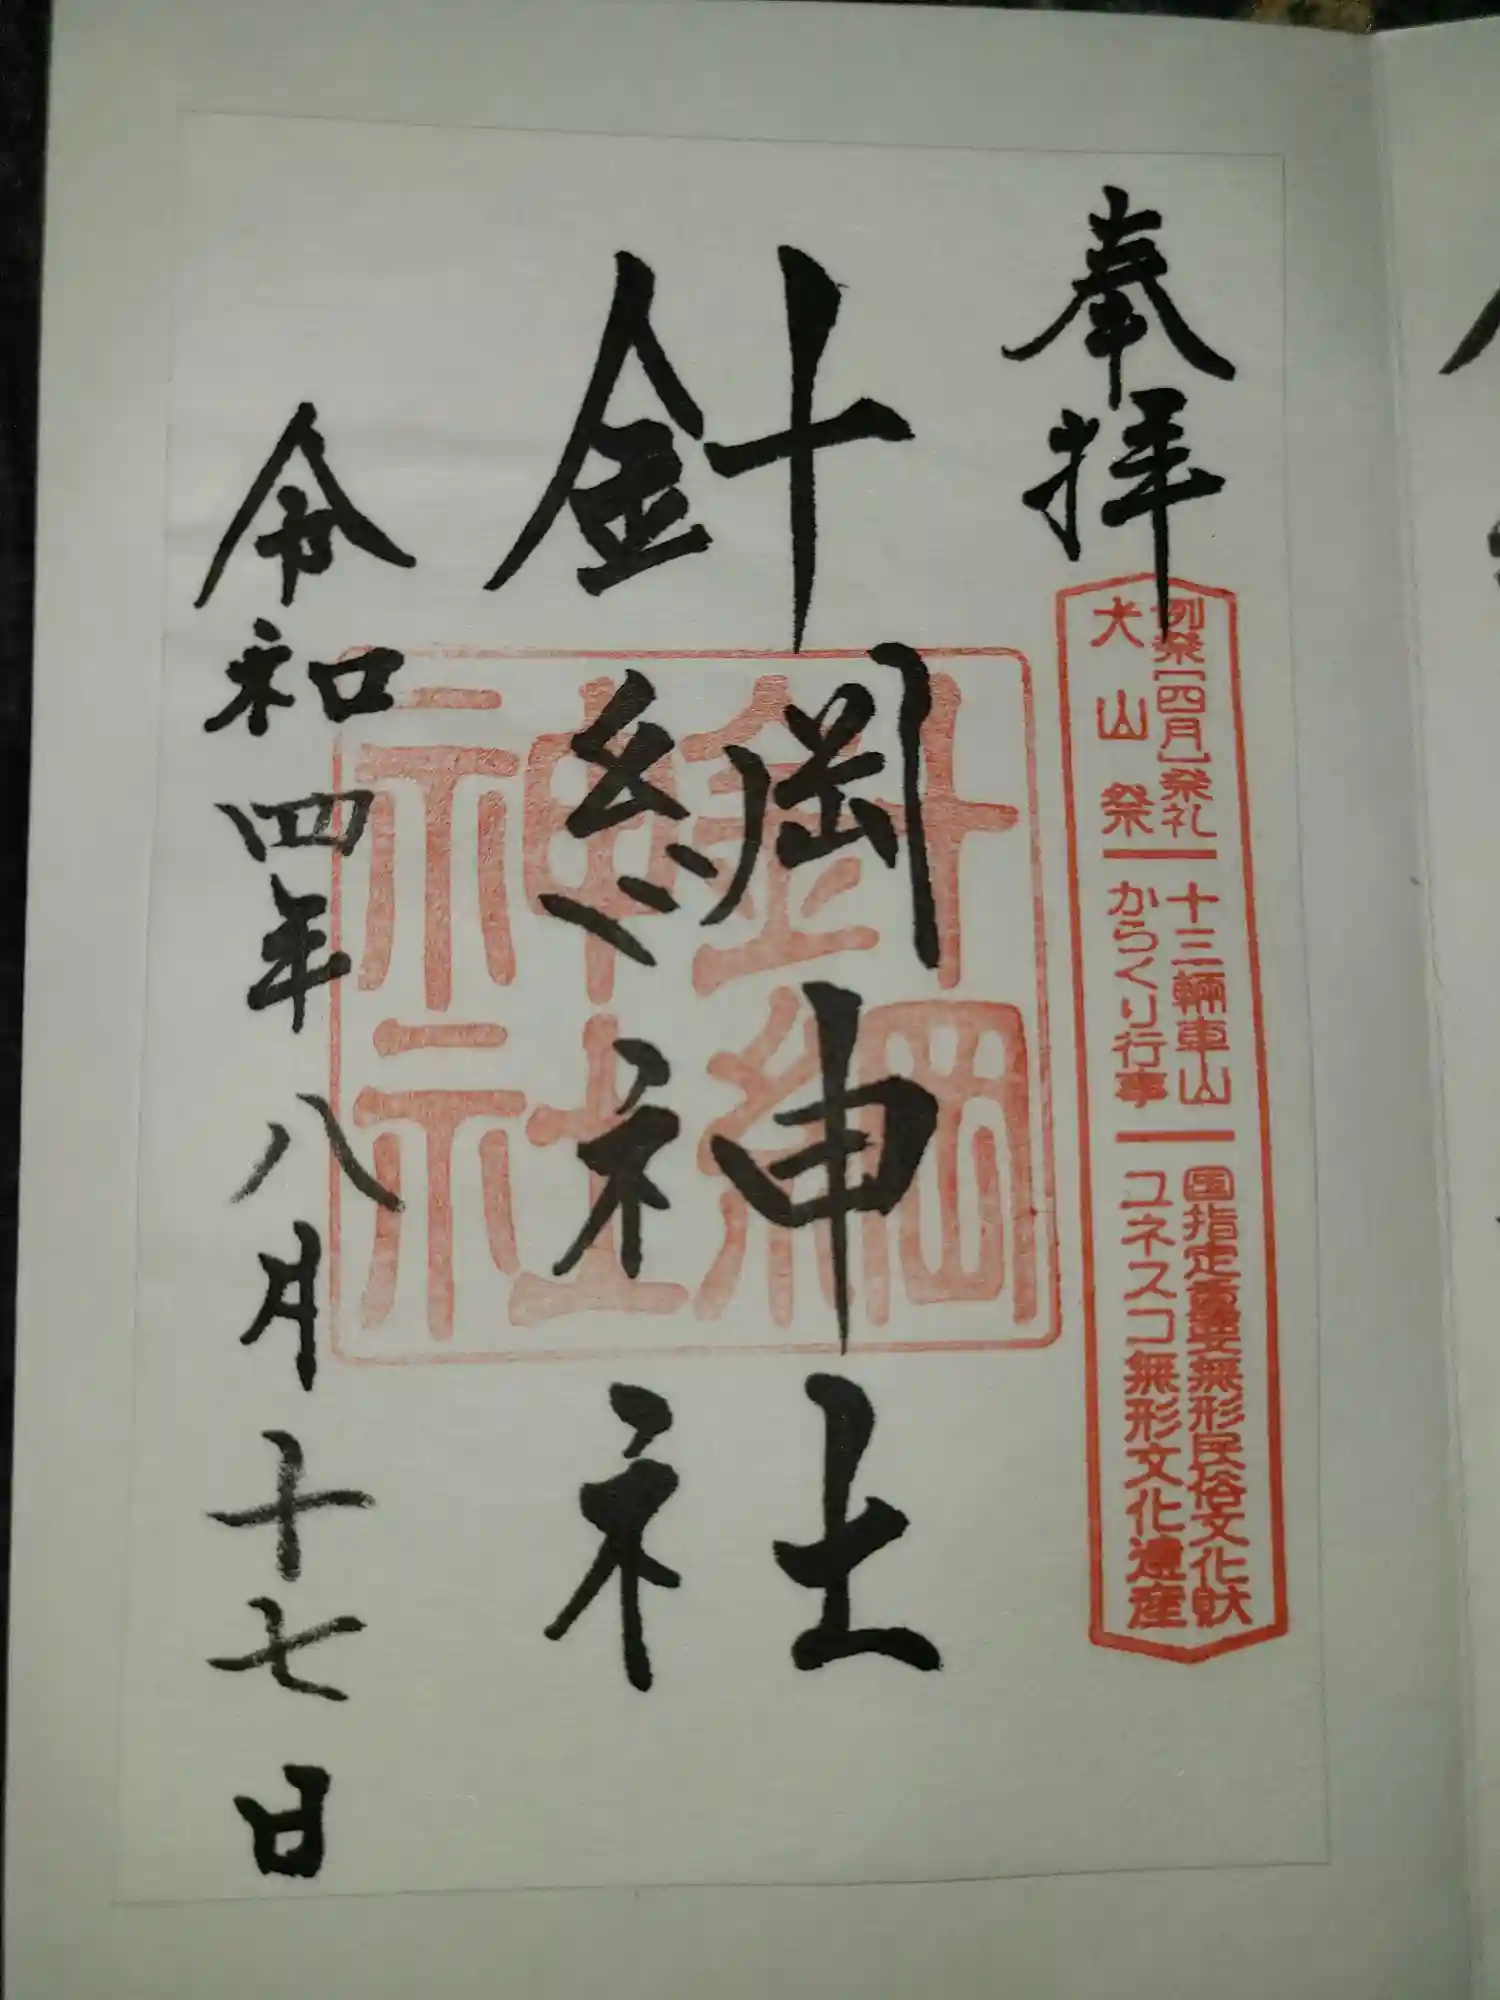 奉拝
例祭[四月]祭礼
犬山祭
十三輛車山
からくり行事
国指定重要無形民俗文化財
ユネスコ無形文化遺産
針綱神社
針綱
神社
令和四年八月十七日